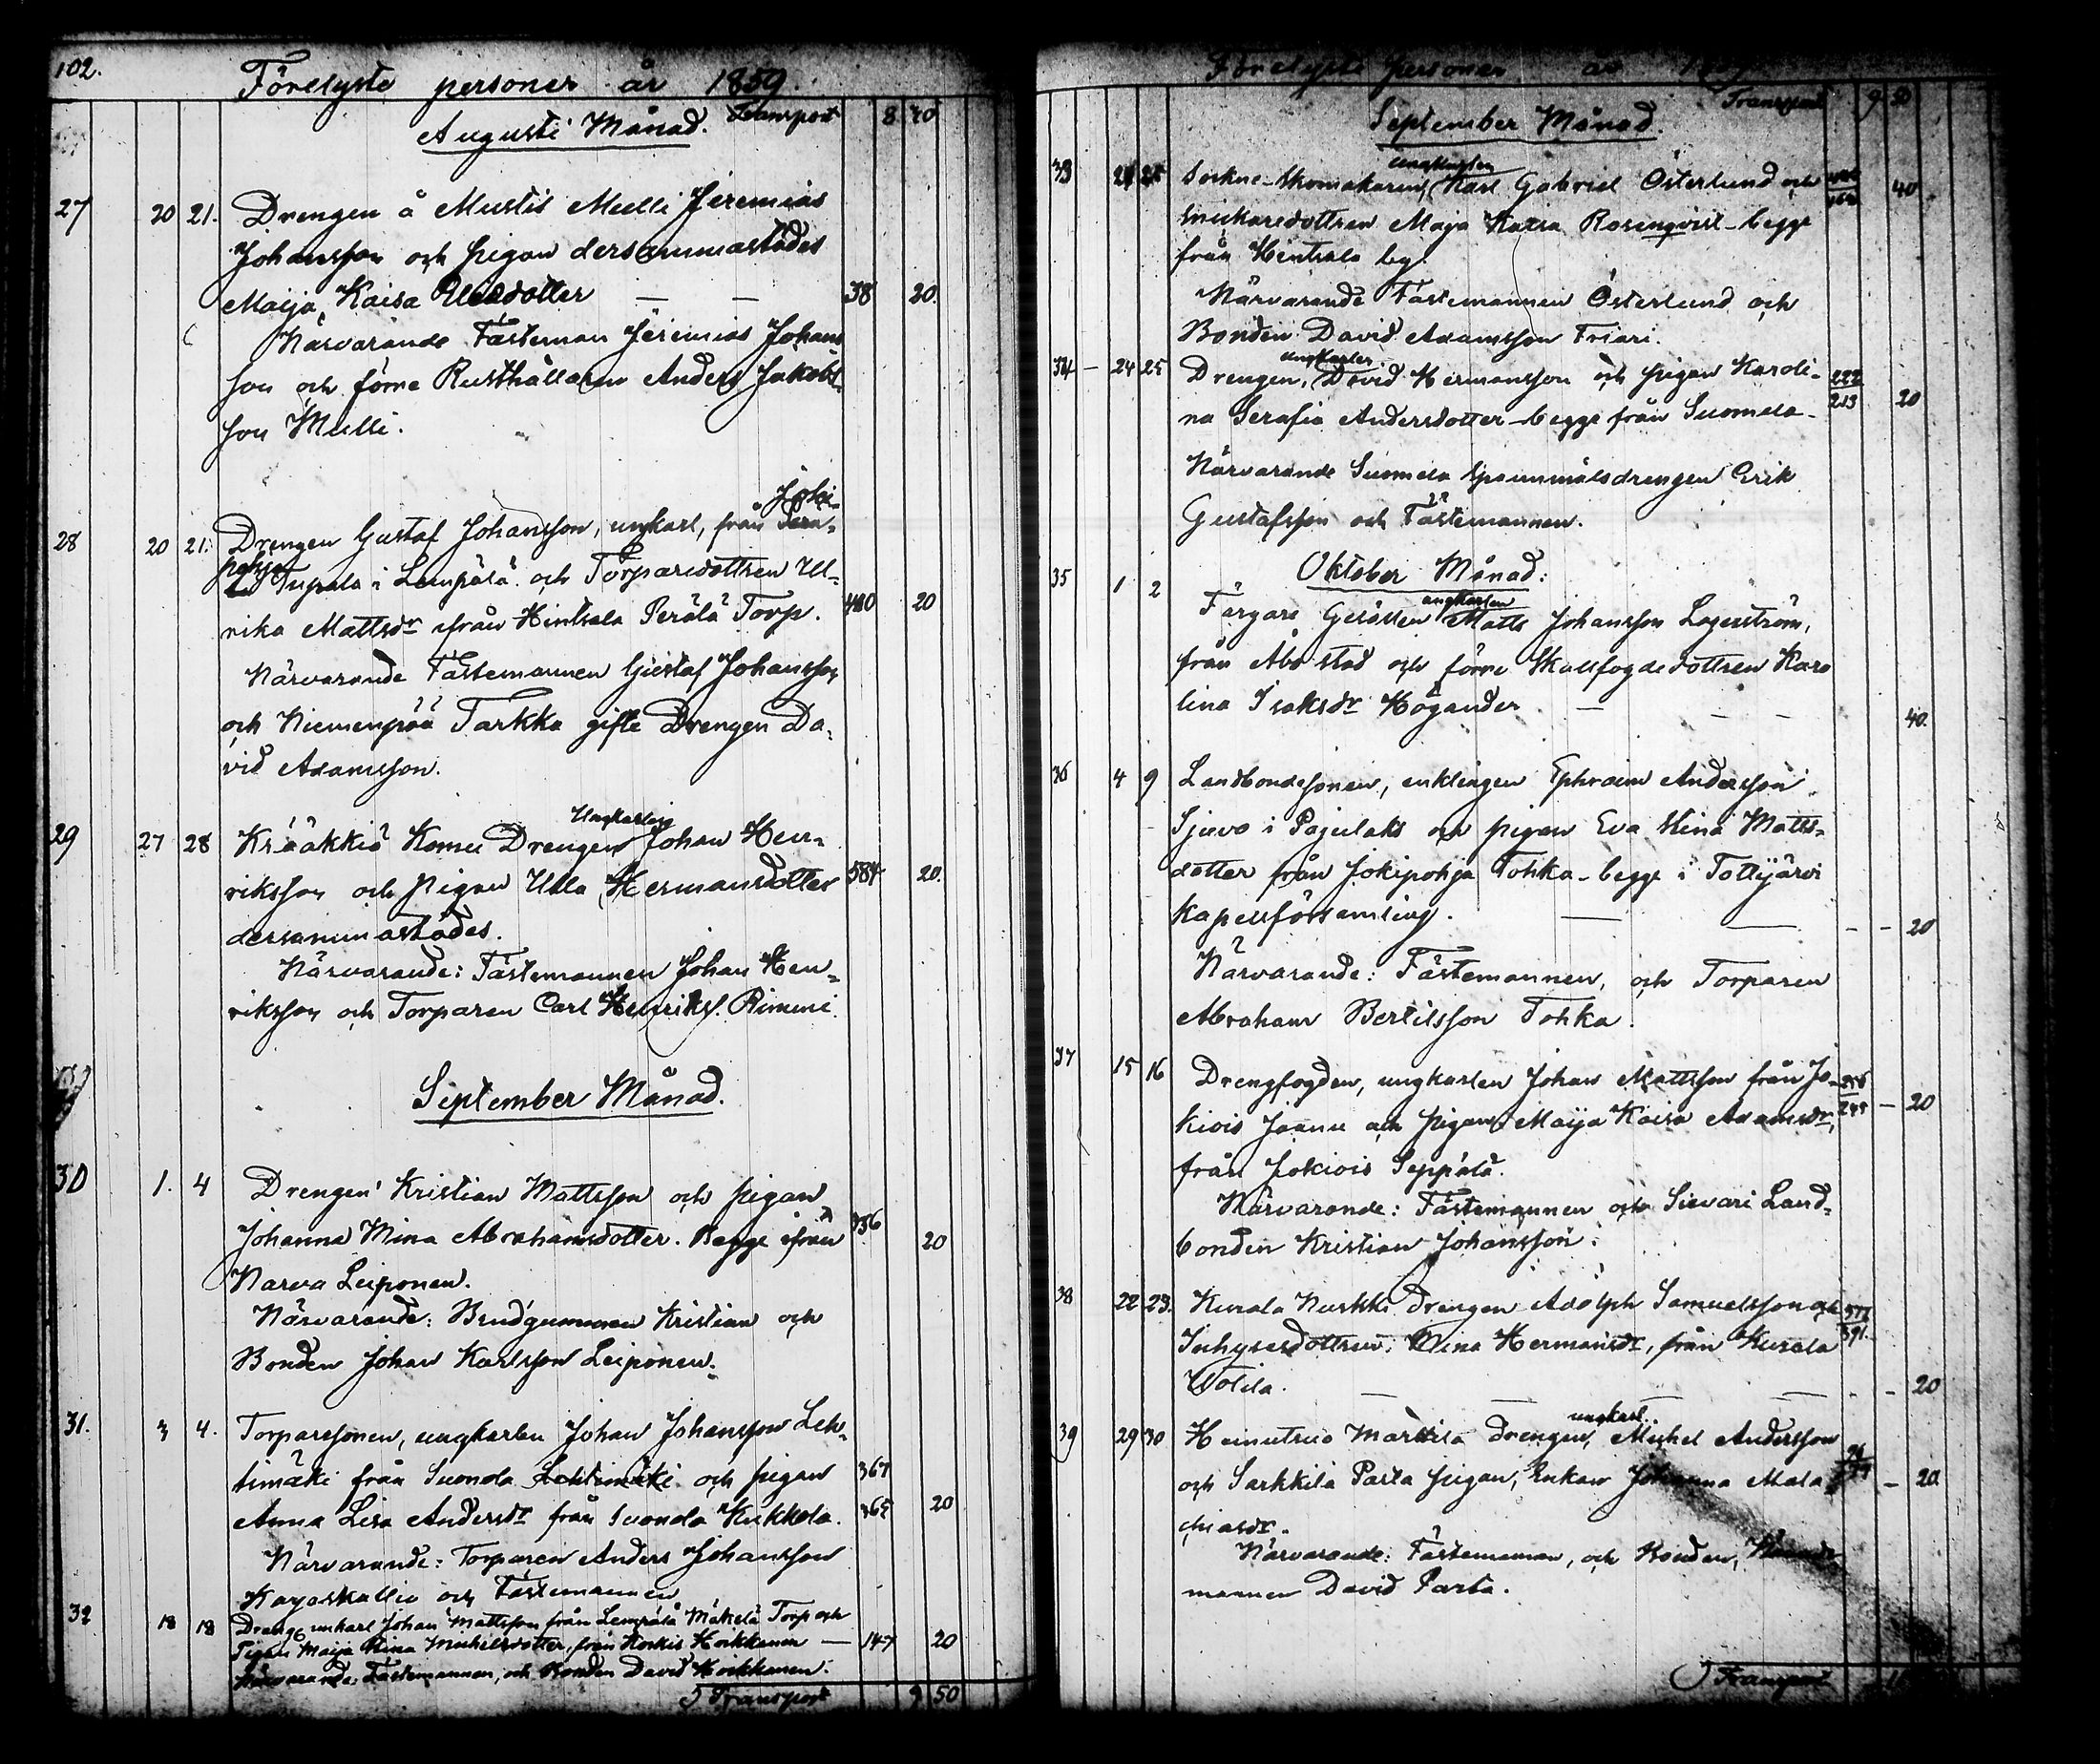 102.
Förelyste personer år 1859.
Augusti Månad. Transport 8 40
27 20 21. Drengen å Mustis Mulli Jeremias
Johansson och pigan dersammastädes
Maija Kaisa dotter — — 38 20
Närvarande Fästeman Jeremias Johans
son och förre Rusthållaren Anders Jakobs-
son Mulli.
28 20 21. Drengen Gustaf Johansson, ungkarl, från Joki-
pohja Tupala i Lempälä och Torparedottren Ul-
rika Mattsdr ifrån Hintsala Perälä Torp. 480 20
Närvarande Fästemannen Gustaf Johansson
och Niemenpää Tarkka gifte Drengen Da-
vid Adamsson.
29 27 28 Krääkkiö Komu Drengen Ungkarlen Johan Hen-
riksson och Pigan Ulla Hermansdotter 584 20.
dersammastädes.
Närvarande: Fästemannen Johan Hen-
riksson och Torparen Carl Henrikss. Rimmi
September Månad.
30 1. 4 Drengen Kristian Mattsson och pigan
Johanna Mina Abrahamsdotter. Begge ifrån 336 20
Narva Leiponen.
Närvarande: Brudgummen Kristian och
Bonden Johan Karlsson Leiponen.
31. 3 4. Torparesonen, ungkarlen Johan Johansson Leh-
timäki från Suonola Lehtimäki och pigan 367
Anna Lisa Andersdr från Suonola Kukkola. 365 20
Närvarande: Torparen Anders Johansson
Kayaskallio och Fästemannen
32 18 18 Dreng, unkarl Johan Mattsson från Lempälä Mäkelä Torp och
Pigan Maija Stina Michelsdotter, från Korkis Hoikkanen — 147 20
Närvarande. Fästemannen, och Bonden David Hoikkanen.
Transport 9 50
Förelyste personer år
Transport 9 50
September Månad.
33 24 25 Sockne-skomakaren, ungkarlen Karl Gabriel Österlund och 40
snickaredottren Maja Kaisa Rosenqvist – begge
från Hintsala by.
Närvarande Fästemannen Österlund och
Bonden David Adamsson Friari.
34 – 24 25 Drengen, ungkarlen David Hermansson och pigan Karoli- 222
213 20
na Serafia Andersdotter – begge från Suomela –
Närvarande Suomela Spannmålsdrengen Erik
Gustafsson och Fästemannen.
Oktober Månad.
35 1 2 Färgare Gesällen ungkarlen Matts Johansson Lagerström,
från Åbo stad och förre Skallfogde dottren Karo
lina Isaksdr Högander — — — 40.
36 4 9 Landbondesonen, enklingen Ephraim Andersson
Sjuvo i Pajulaks och pigan Eva Stina Matts-
dotter från Jokipohja Tohka – begge i Tottijärvi
Kapellförsamling. — — - - 20
Närvarande: Fästemannen, och Torparen
Abraham Bertilsson Tohka.
37 15 16 Drengfogden, ungkarlen Johan Mattsson från Jo-
kiois Jaanu och pigan Maija Kaisa Adamsdr, 249 – 20
från Jokiois Seppälä.
Närvarande: Fästemannen och Sievari Land-
bonden Kristian Johansson.
38 22 23. Kurala Nuskki drengen Adolph Samuelsson och 577
Inhysesdottren, Stina Hermansdr, från Kurala 591.
Uotila. — — — - - 20
39 29 30 Heinutrio Markila drengen, ungkarl. Michel Andersson
och Sarkkila Parta pigan, Enkan Johanna Mala – 20.
chiasdr.
Närvarande: Fästemannen, och Bonden,
mannen David Parta.
Transport